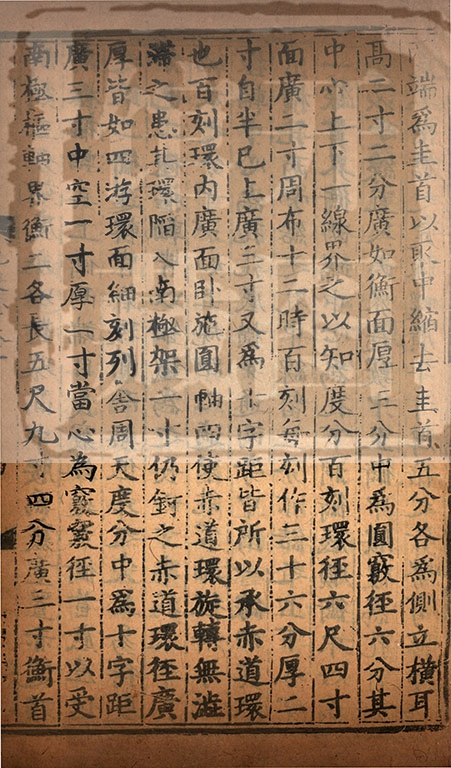 端為圭首以取中縮去圭首五分各為側立橫耳
高二寸二分廣如衡面厚三分中為圓竅徑六分其
中心上下一線界之以知度分百刻環徑六尺四寸
面廣二寸周布十二時百刻每刻作三十六分厚二
寸自半已上廣三寸又為十字距皆所以承赤道環
也百刻環內廣面臥施圓軸四使赤道環旋轉無澁
滯之患其環陷入南極架一寸仍釘之赤道環徑廣
厚皆如四游環面細刻列舍周天度分中為十字距
廣三寸中空一寸厚一寸當心為竅竅徑一寸以受
南極樞軸界衡二各長五尺九寸四分廣三寸衡首